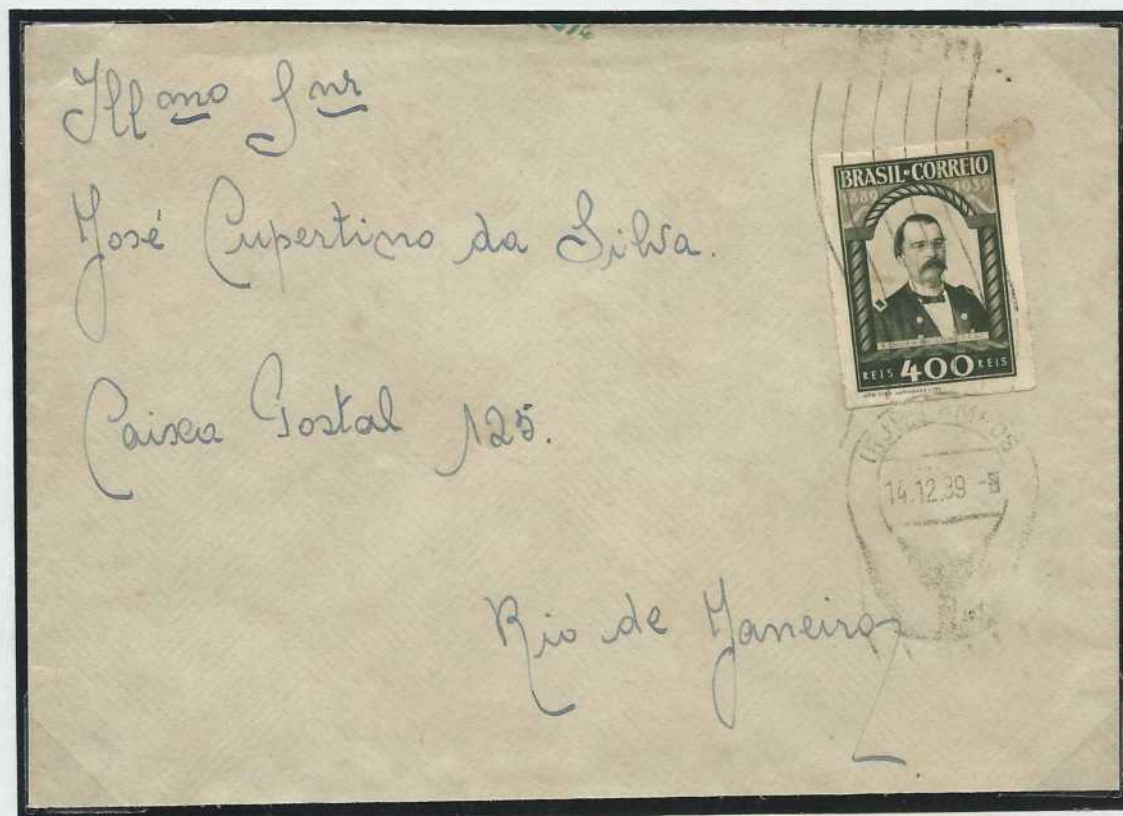 Illmo Snr
José Cupertino da Silva.
Caixa Postal 125.
Rio de Janeiro
BRASIL·CORREIO
1889 1939
REIS 400 REIS
14.12.39